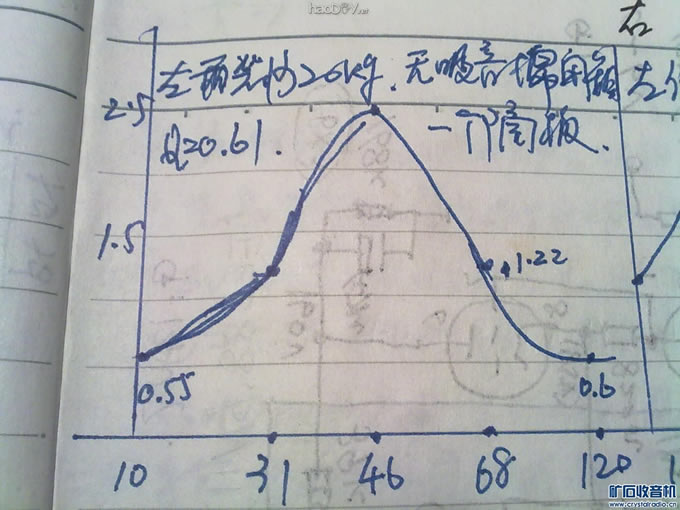 haoDIY.net
右
左 丽装沙26kg.无吸音棉闭箱
Q=0.61.
一个
2.5
1.5
1.22
0.55
0.6
10 31 46 68 120
矿石收音机
www.crystalradio.cn